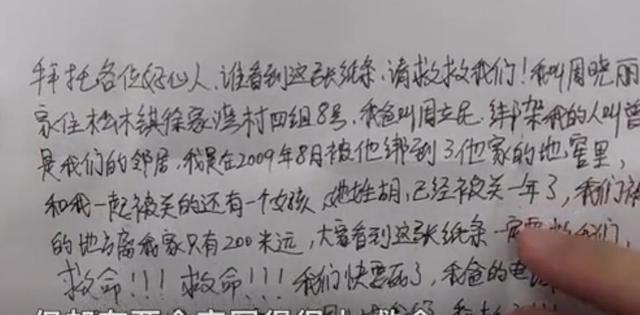 拜托各位好心人,谁看到这张纸条,请救救我们!我叫周晓丽
家住松木镇徐家湾村四组8号,我爸叫周立民,绑架我的人叫曾
是我们的邻居,我是在2009年8月被他绑到了他家的地窖里,
和我一起被关的还有一个女孩,她姓胡,已经被关一年了,我们被
的地方离我家只有200米远,大家看到这张纸条一定要救我们,
救命!!!救命!!!我们快要死了,我爸的电话